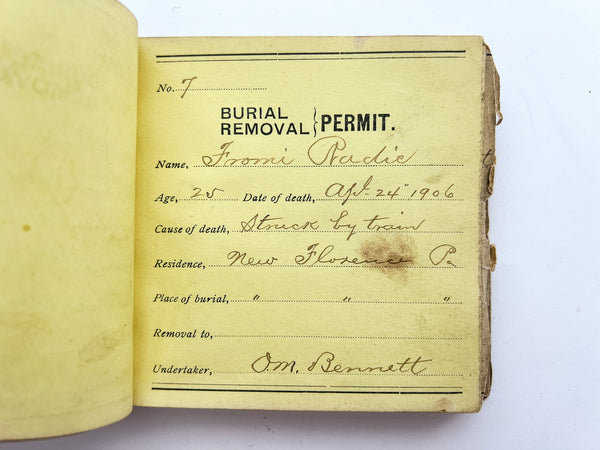 No. 7
BURIAL
REMOVAL } PERMIT.
Name, Fromi Radic
Age, 25 Date of death, Apl. 24" 1906
Cause of death, Struck by train
Residence, New Florence Pa
Place of burial, " " "
Removal to,
Undertaker, O.M. Bennett